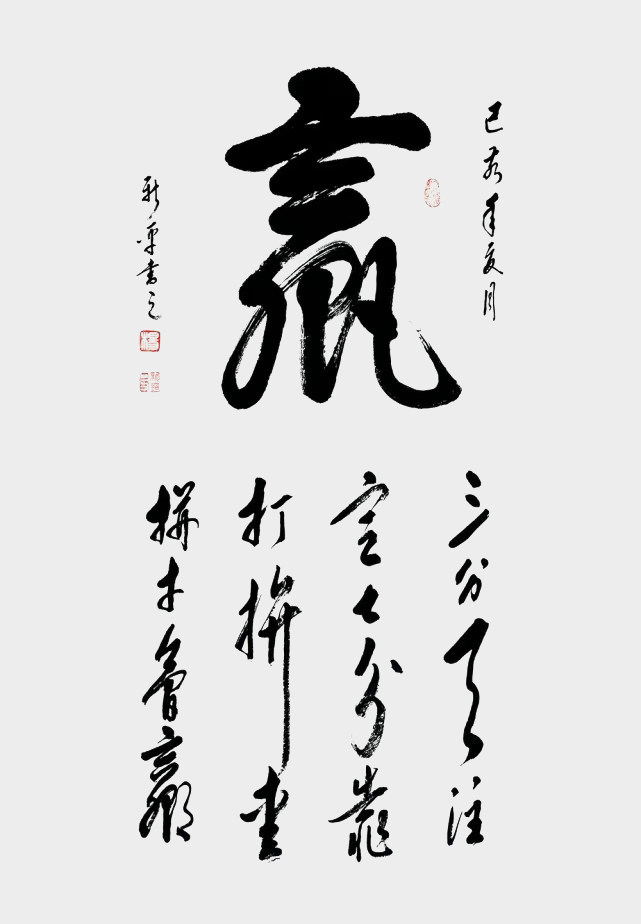 己亥年夏月
赢
書之
三分天注
定七分靠
打拼爱
拼才會赢